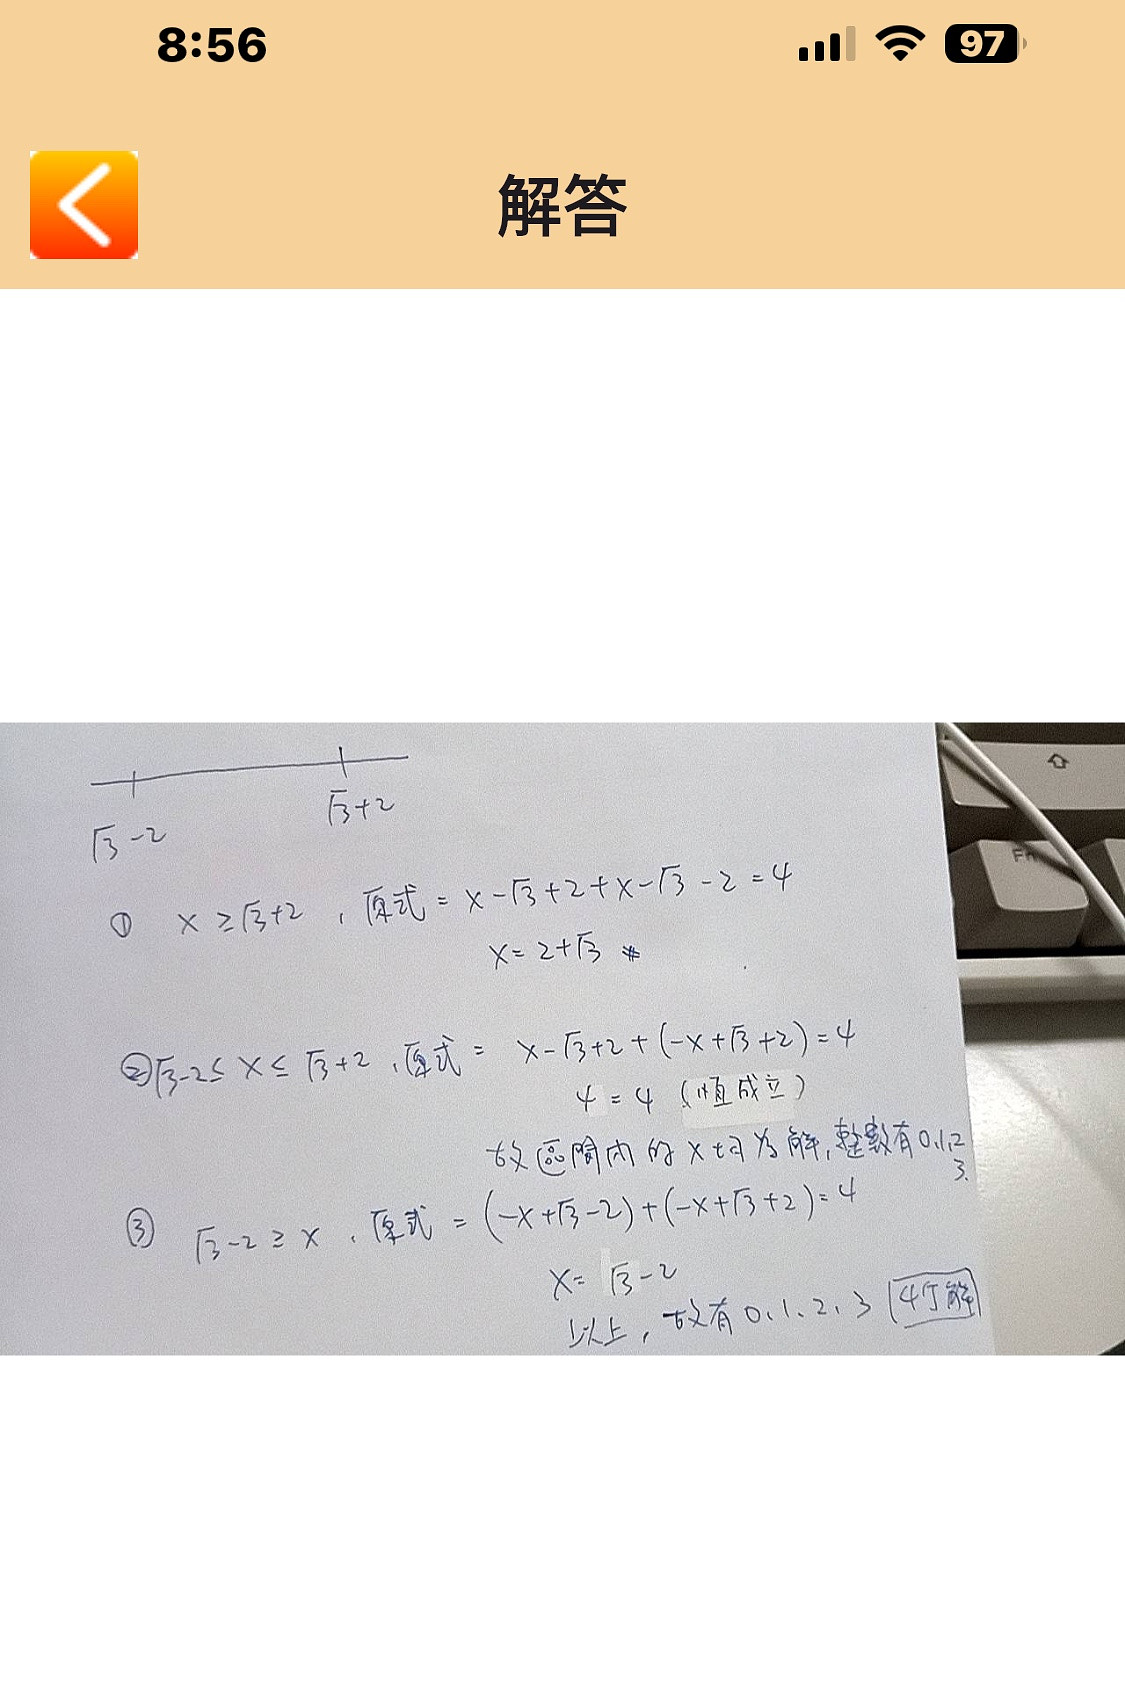 8:56
97
解答
√3-2
√3+2
① x≥√3+2 , 原式= x-√3+2+x-√3-2=4
x=2+√3 #
②√3-2≤x≤√3+2 , 原式= x-√3+2+(-x+√3+2)=4
4=4 (恆成立)
故區間內的x均為解,整數有0,1,2
3.
③ √3-2≥x , 原式=(-x+√3-2)+(-x+√3+2)=4
x=√3-2
以上,故有0、1、2、3 4个解
Fn